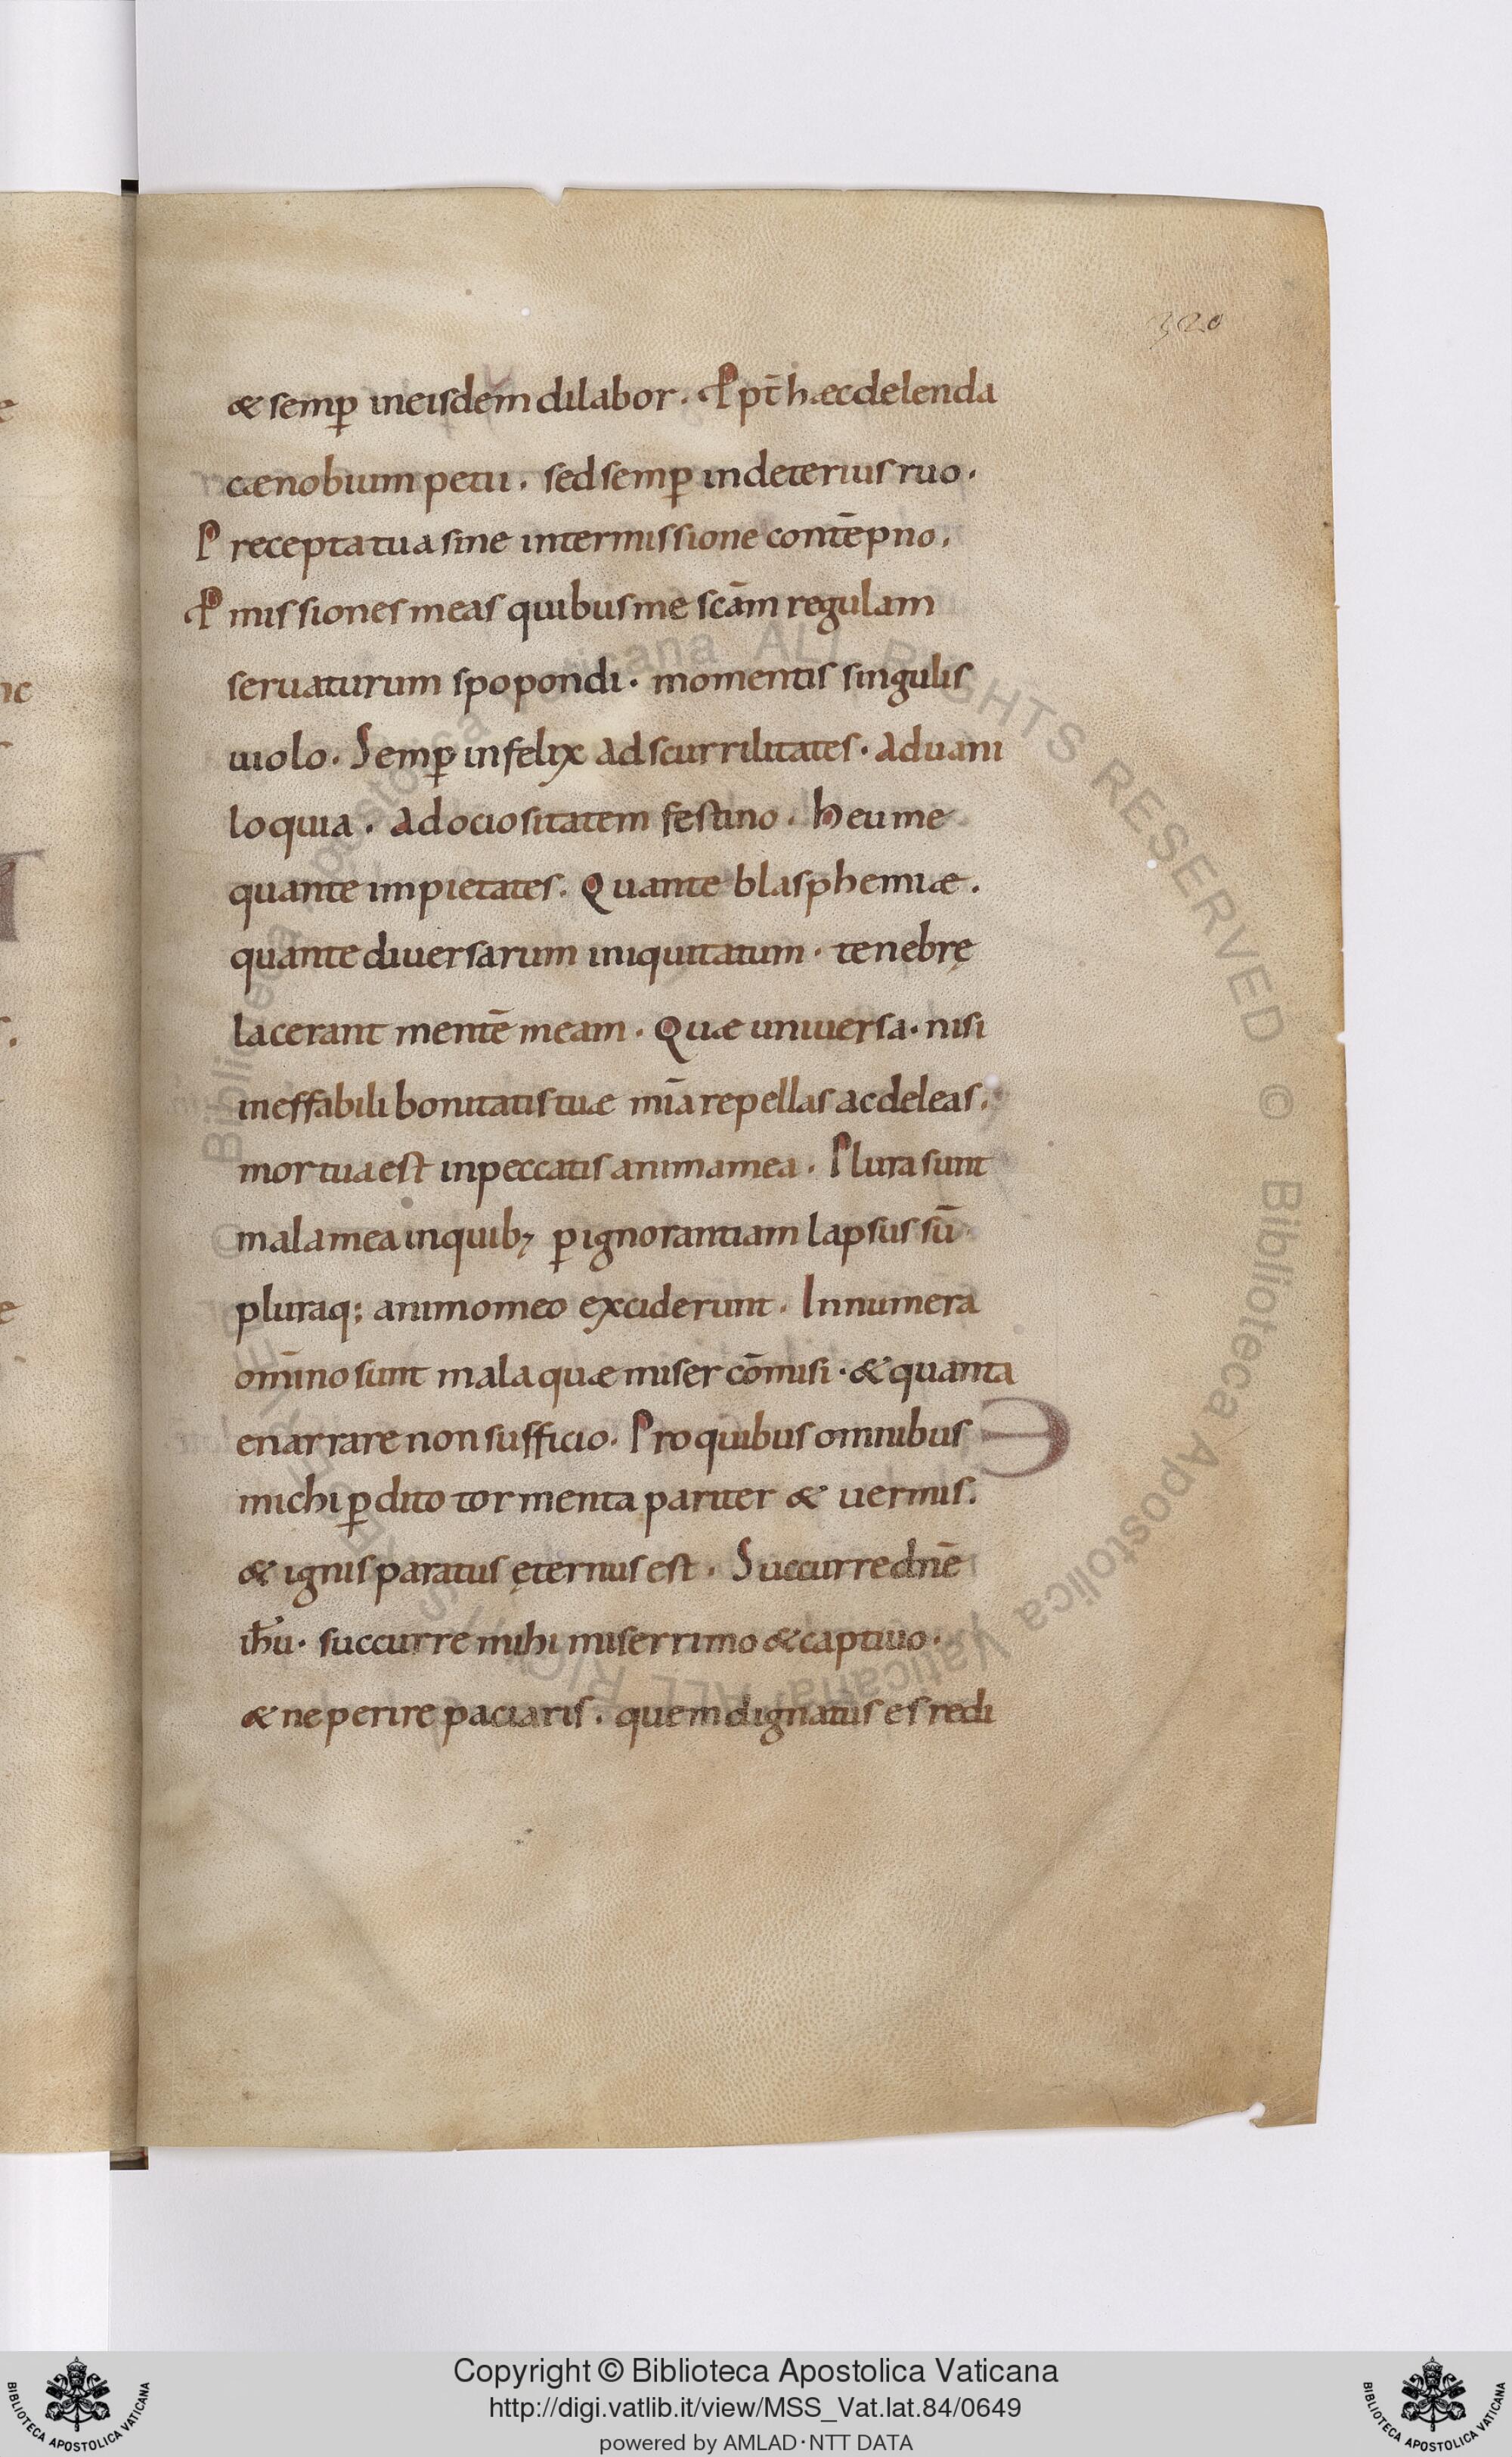 320
& semꝑ ineisdem dilabor. Ꝓpt̄ hæc delenda
cænobium petii. sed semꝑ in deterius ruo.
Precepta tua sine intermissione contēpno.
Ꝓmissiones meas quibus me scām regulam
seruaturum spopondi. momentis singulis
uiolo. Semꝑ infelix ad scurrilitates. ad uani
loquia. ad ociositatem festino. heu me
quante impietates. Quante blasphemiæ.
quante diuersarum iniquitatum. tenebrę
lacerant mentē meam. Quæ uniuersa. nisi
ineffabili bonitatis tuæ mīa repellas ac deleas.
mortua est in peccatis anima mea. Plura sunt
mala mea in quib; ꝑ ignorantiam lapsus sū
pluraq; animo meo exciderunt. Innumera
omīno sunt mala quæ miser cōmisi. & quanta
enarrare non sufficio. Pro quibus omnibus
michi ꝑdito tormenta pariter & uermis.
& ignis paratus ęternus est. Succurre dn̄e
ih̄u. succurre mihi miserrimo & captiuo.
& ne perire paciaris. quem dignatus es redi
Copyright © Biblioteca Apostolica Vaticana
http://digi.vatlib.it/view/MSS_Vat.lat.84/0649
powered by AMLAD·NTT DATA
BIBLIOTECA APOSTOLICA VATICANA
BIBLIOTECA APOSTOLICA VATICANA